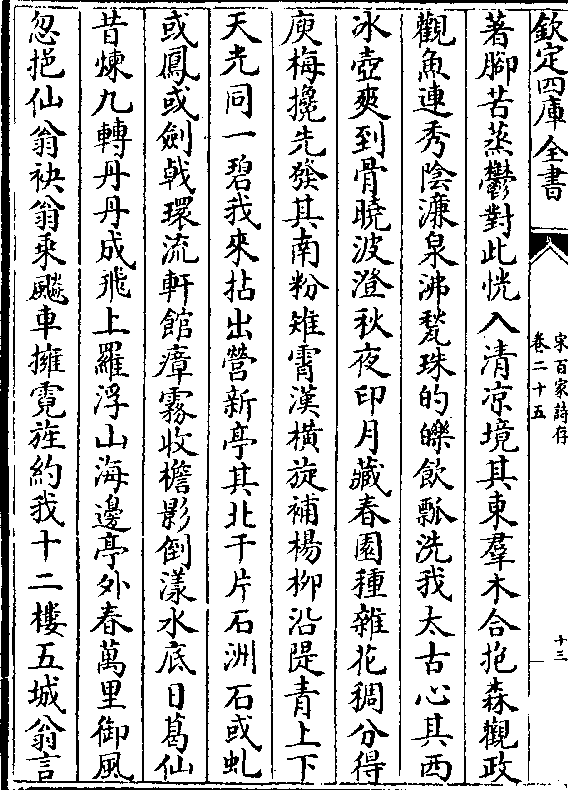 欽定四庫全書
宋百家詩存
卷二十五
十三
著腳苦蒸鬱對此恍入清凉境其東羣木合抱森觀政
觀魚連秀陰濂泉沸甃珠的皪飲瓢洗我太古心其西
冰壺爽到骨曉波澄秋夜印月藏春園種雜花稠分得
庾梅攙先發其南粉雉霄漢橫旋補楊柳沿隄青上下
天光同一碧我來拈出營新亭其北千片石洲石或虬
或鳳或劍㦸環流軒館瘴霧收檐影倒漾水底日葛仙
昔煉九轉丹丹成飛上羅浮山海邊亭外春萬里御風
忽挹仙翁袂翁乘飈車擁霓旌約我十二樓五城翁言